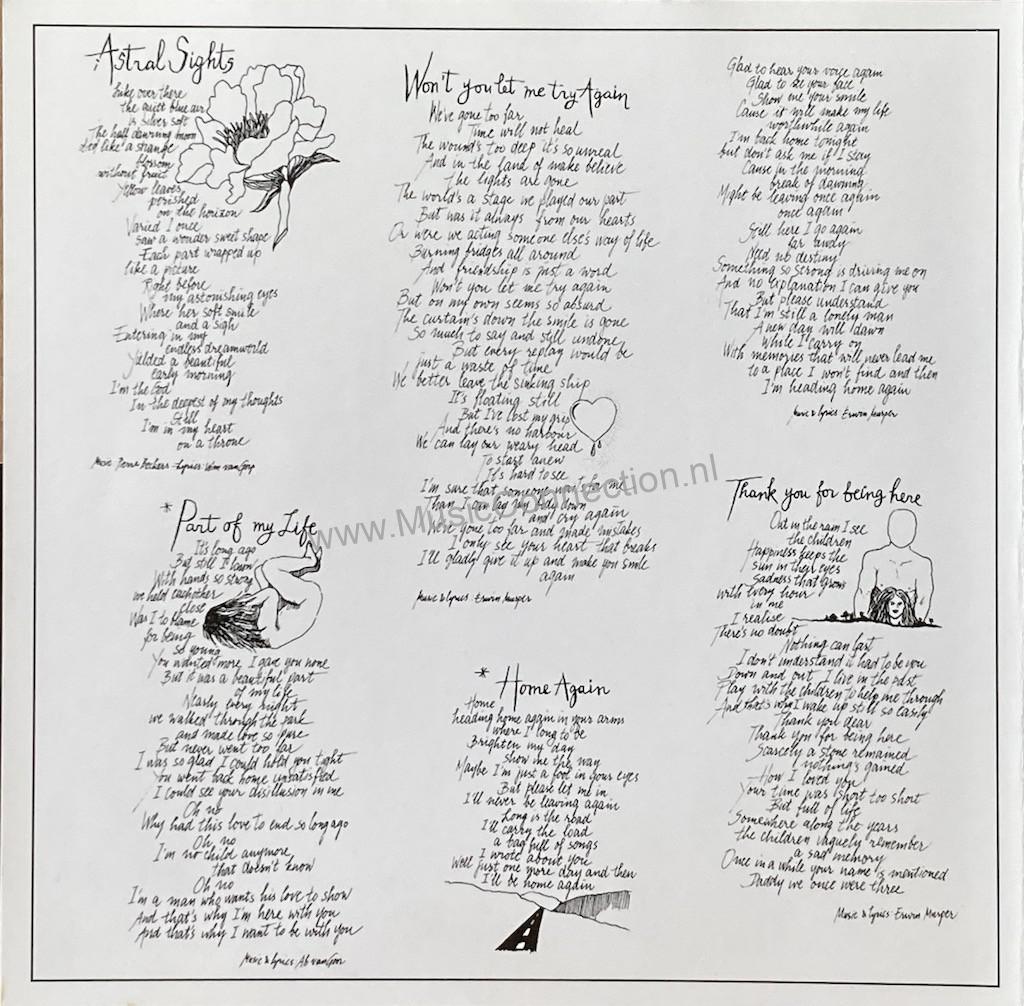 Astral Sights
Like over there
the quiet blue air
is silver soft
The half dawning moon
died like a strange
blossom
without fruit
Yellow leaves
perished
on the horizon
Varied I once
saw a wonder sweet shape
Each part wrapped up
like a picture
Right before
my astonishing eyes
Where her soft smile
and a sigh
Entering in my
endless dreamworld
Yielded a beautiful
early morning
I'm the God
In the deepest of my thoughts
Still
I'm in my heart
on a throne
Music Pierre Beckers - Lyrics Wim van Gorp
* Part of my Life
It's long ago
But still I know
With hands so strong
we held eachother
close
Was I to blame
for being
so young
You wanted more, I gave you none
But it was a beautiful part
of my life
Nearly every night
we walked through the park
and made love so pure
But never went too far
I was so glad I could hold you tight
You went back home unsatisfied
I could see your disillusion in me
Oh no
Why had this love to end so long ago
Oh, no
I'm no child anymore,
that doesn't know
Oh no
I'm a man who wants his love to show
And that's why I'm here with you
And that's why I want to be with you
Music & lyrics: Ab van Goor
Won't you let me try Again
We've gone too far
Time will not heal
The wound's too deep it's so unreal
And in the land of make believe
The lights are gone
The world's a stage we played our part
But was it always from our hearts
Or were we acting someone else's way of life
Burning bridges all around
And friendship is just a word
Won't you let me try again
But on my own seems so absurd
The curtain's down the smile is gone
So much to say and still undone
But every replay would be
just a waste of time
We better leave the sinking ship
It's floating still
But I've lost my grip
And there's no harbour
We can lay our weary head
To start anew
It's hard to see
I'm sure that someone wait for me
Than I can lay my body down
and cry again
We've gone too far and made mistakes
I only see your heart that breaks
I'll gladly give it up and make you smile
again
Music & lyrics - Erwin Musper
* Home Again
Home
heading home again in your arms
where I long to be
Brighten my day
show me the way
Maybe I'm just a fool in your eyes
But please let me in
I'll never be leaving again
Long is the road
I'll carry the load
a bag full of songs
I wrote about you
Well just one more day and then
I'll be home again
Glad to hear your voice again
Glad to see your face
Show me your smile
Cause it will make my life
worthwhile again
I'm back home tonight
but don't ask me if I stay
Cause in the morning
break of dawning
Might be leaving once again
once again
Still here I go again
far away
Need no destiny
Something so strong is driving me on
And no explanation I can give you
But please understand
That I'm still a lonely man
A new day will dawn
While I carry on
With memories that will never lead me
to a place I won't find and then
I'm heading home again
Music & lyrics - Erwin Musper
Thank you for being here
Out in the rain I see
the children
Happiness keeps the
sun in their eyes
Sadness that grows
with every hour
in me
I realise
There's no doubt
Nothing can last
I don't understand it had to be you
Down and out I live in the past
Play with the children to help me through
And that's why I wake up still so easily
Thank you dear
Thank you for being here
Scarcely a stone remained
nothing's gained
How I loved you
Your time was short too short
But full of life
Somewhere along the years
the children vaguely remember
a sad memory
Once in a while your name is mentioned
Daddy we once were three
Music & lyrics - Erwin Musper
www.MusicConnection.nl